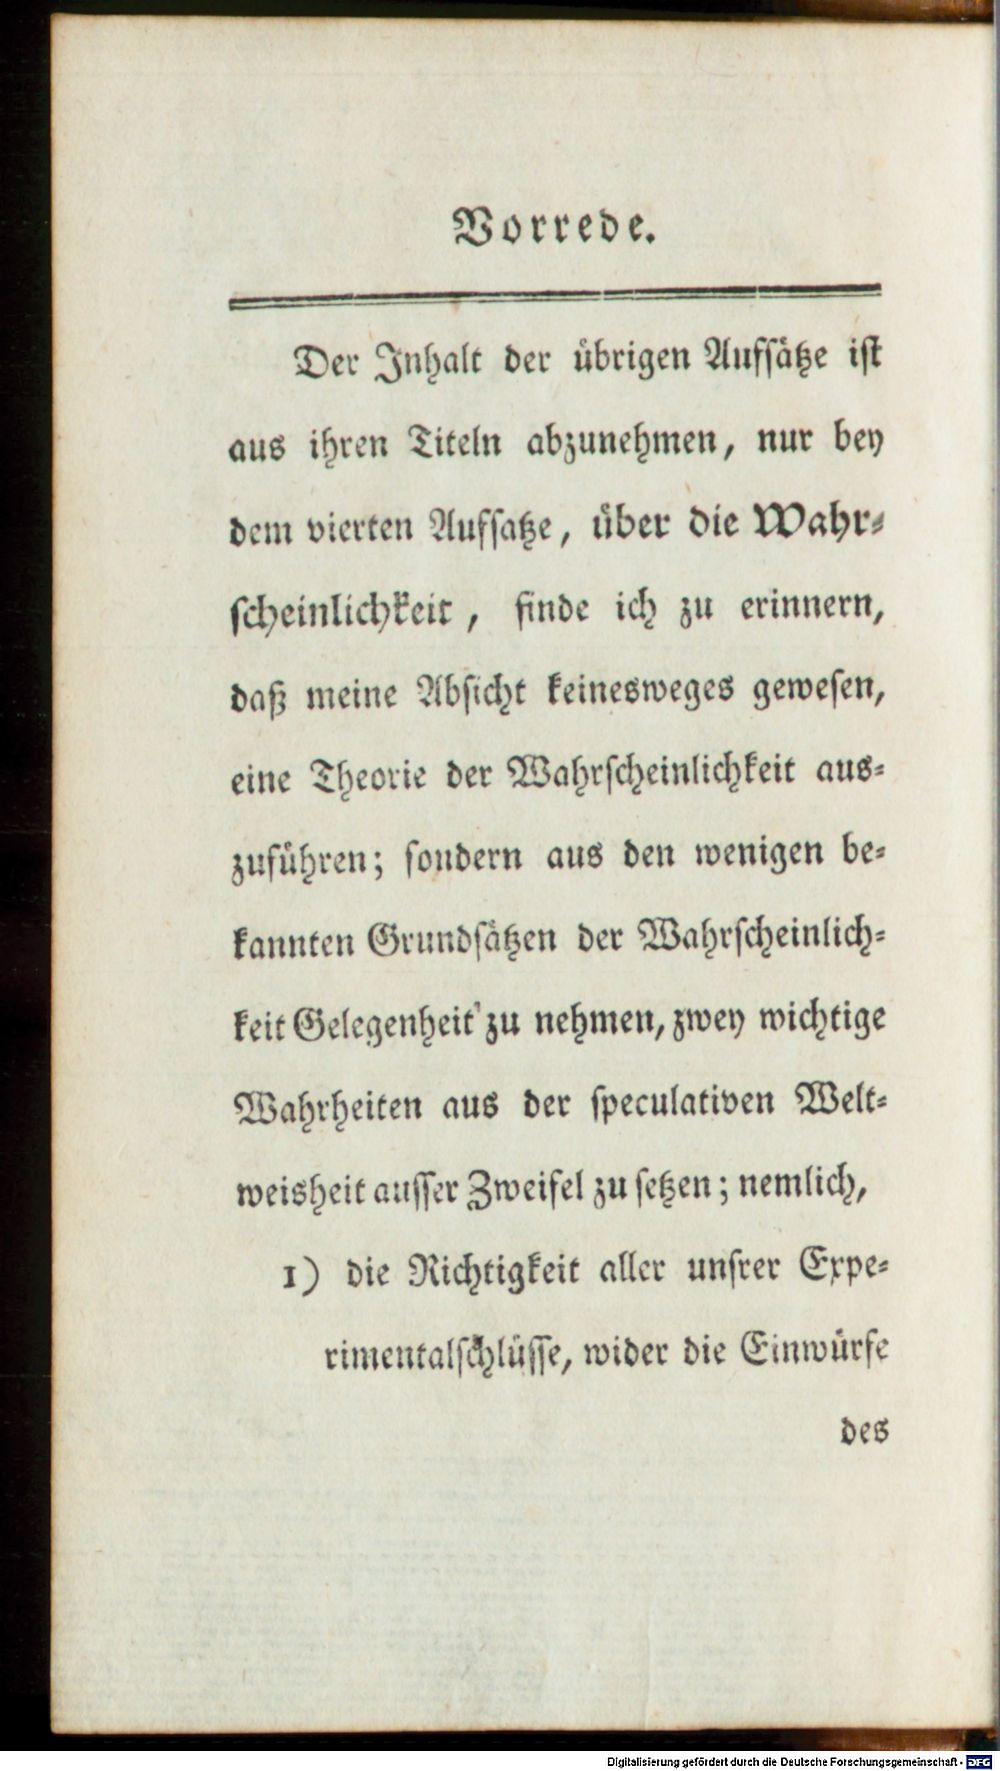 Vorrede.
Der Inhalt der übrigen Aufsätze ist
aus ihren Titeln abzunehmen, nur bey
dem vierten Aufsatze, über die Wahr-
scheinlichkeit, finde ich zu erinnern,
daß meine Absicht keinesweges gewesen,
eine Theorie der Wahrscheinlichkeit aus-
zuführen; sondern aus den wenigen be-
kannten Grundsätzen der Wahrscheinlich-
keit Gelegenheit zu nehmen, zwey wichtige
Wahrheiten aus der speculativen Welt-
weisheit ausser Zweifel zu setzen; nemlich,
1) die Richtigkeit aller unsrer Expe-
rimentalschlüsse, wider die Einwürfe
des
Digitalisierung gefördert durch die Deutsche Forschungsgemeinschaft - DFG